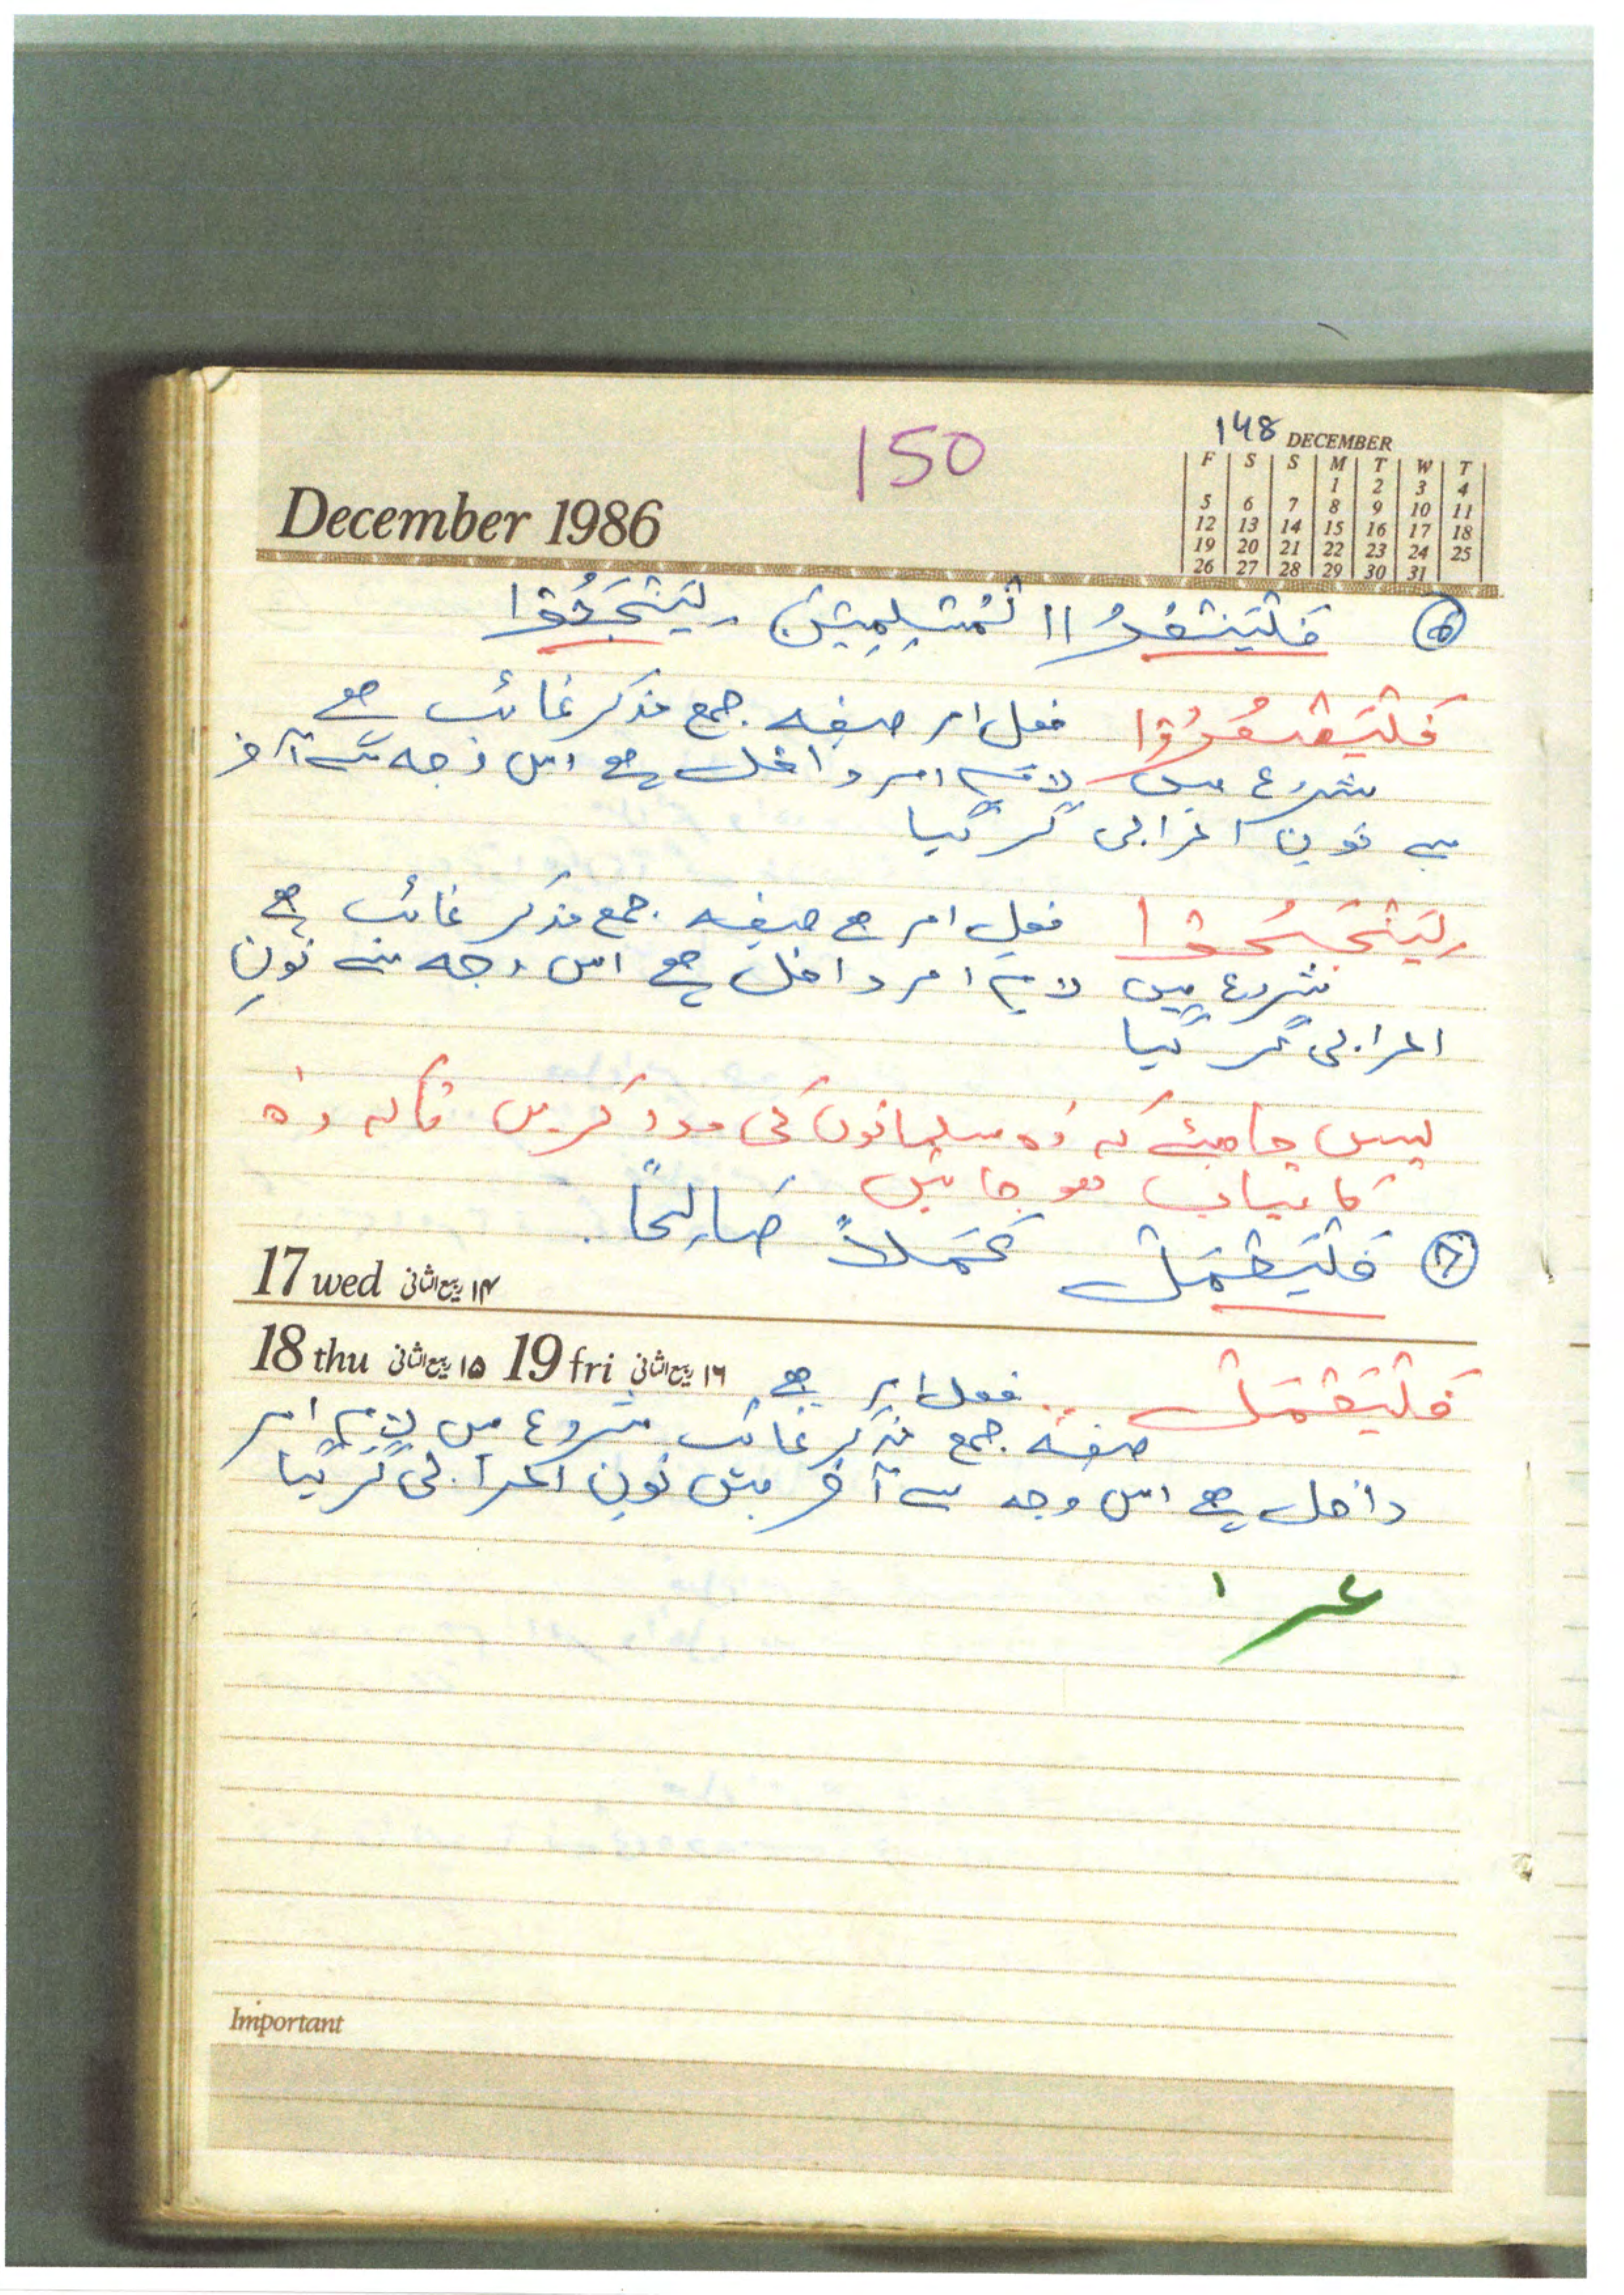 148
150
DECEMBER
F S S M T W T
1 2 3 4
5 6 7 8 9 10 11
12 13 14 15 16 17 18
19 20 21 22 23 24 25
26 27 28 29 30 31
December 1986
فَلْيَنْصُرُوا الْمُسْلِمِيْنَ لِيَنْجَحُوْا
فَلْيَنْصُرُوْا فعل امر صیغہ جمع مذکر غائب ہے
شروع میں لام امر داخل ہے اس وجہ سے آخر
سے نون اعرابی گر گیا
لِيَنْجَحُوْا فعل امر ہے صیغہ جمع مذکر غائب ہے
شروع میں لام امر داخل ہے اس وجہ سے نونِ
اعرابی گر گیا
پس چاہئے کہ وہ مسلمانوں کی مدد کریں تاکہ وہ
کامیاب ہو جائیں
فَلْيَعْمَلْ عَمَلاً صَالِحًا.
17 wed ۱۴ ربیع الثانی
18 thu ۱۵ ربیع الثانی 19 fri ۱۶ ربیع الثانی
فَلْيَعْمَلْ فعل امر ہے
صیغہ جمع مذکر غائب شروع میں لام امر
داخل ہے اس وجہ سے آخر میں نون اعرابی گر گیا
Important